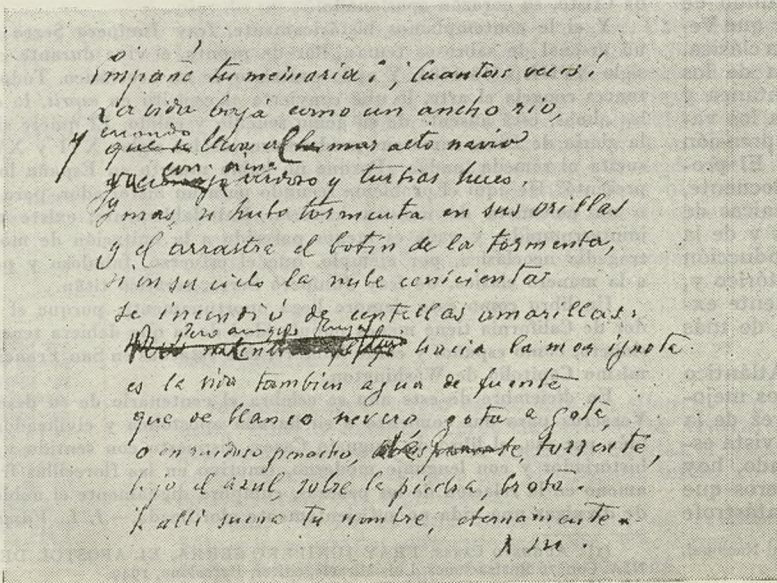 Empañé tu memoria. ¡Cuantas veces!
La vida baja como un ancho rio,
y cuando lleva al mar alto navio
va con cieno verdoso y turbias heces.
Y mas si hubo tormenta en sus orillas
y él arrastra el botin de la tormenta,
si en su cielo la nube cenicienta
se incendió de centellas amarillas.
Pero aunque fluya hacia la mar ignota
es la vida tambien agua de fuente
que de blanco nevero, gota a gota,
o en ruidoso penacho, de torrente,
bajo el azul, sobre la piedra, brota.
Y alli suena tu nombre, eternamente.
A M.